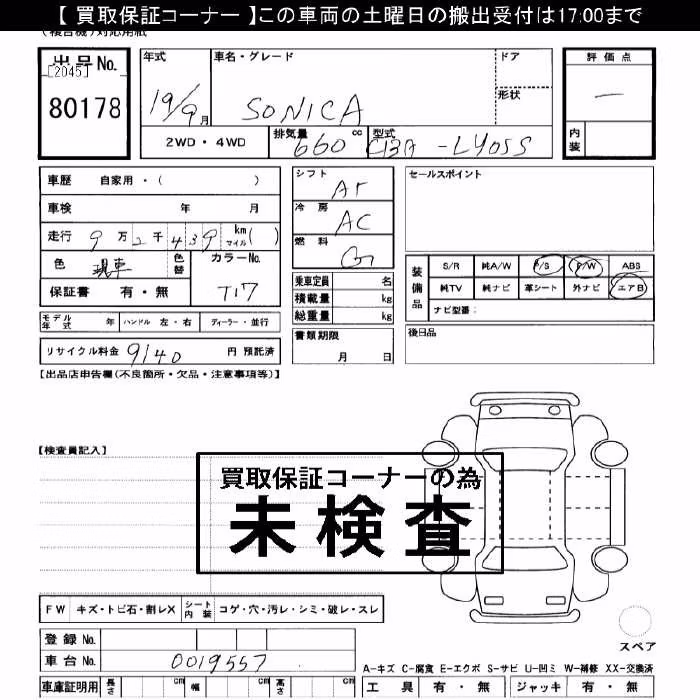 【 買取保証コーナー 】この車両の土曜日の搬出受付は17:00まで
(複合機)対応用紙
出品No.
[2045]
80178
年式
19/9月
車名・グレード
SONICA
ドア
形状
2WD・4WD
排気量
660 cc
型式
CBA-L405S
評価点
—
内装
車歴 自家用・( )
車検 年 月
走行 9万2千439 km マイル( )
色 現車
色替
カラーNo.
T17
保証書 有・無
モデル年式 年 ハンドル 左・右 ディーラー・並行
リサイクル料金 9140 円 預託済
シフト
AT
冷房
AC
燃料
G
乗車定員 名
積載量 kg
総重量 kg
書類期限
月 日
セールスポイント
装備品
S/R 純A/W P/S P/W ABS
純TV 純ナビ 革シート 外ナビ エアB
ナビ型番:
後日品
【出品店申告欄(不良箇所・欠品・注意事項等)】
【検査員記入】
買取保証コーナーの為
未検査
FW キズ・トビ石・割レX
シート内装 コゲ・穴・汚レ・シミ・破レ・スレ
スペア
登録No.
車台No. 0019557
車庫証明用 長さ cm 幅 cm 高さ cm
A-キズ C-腐食 E-エクボ S-サビ U-凹ミ W-補修 XX-交換済
工具 有・無 ジャッキ 有・無